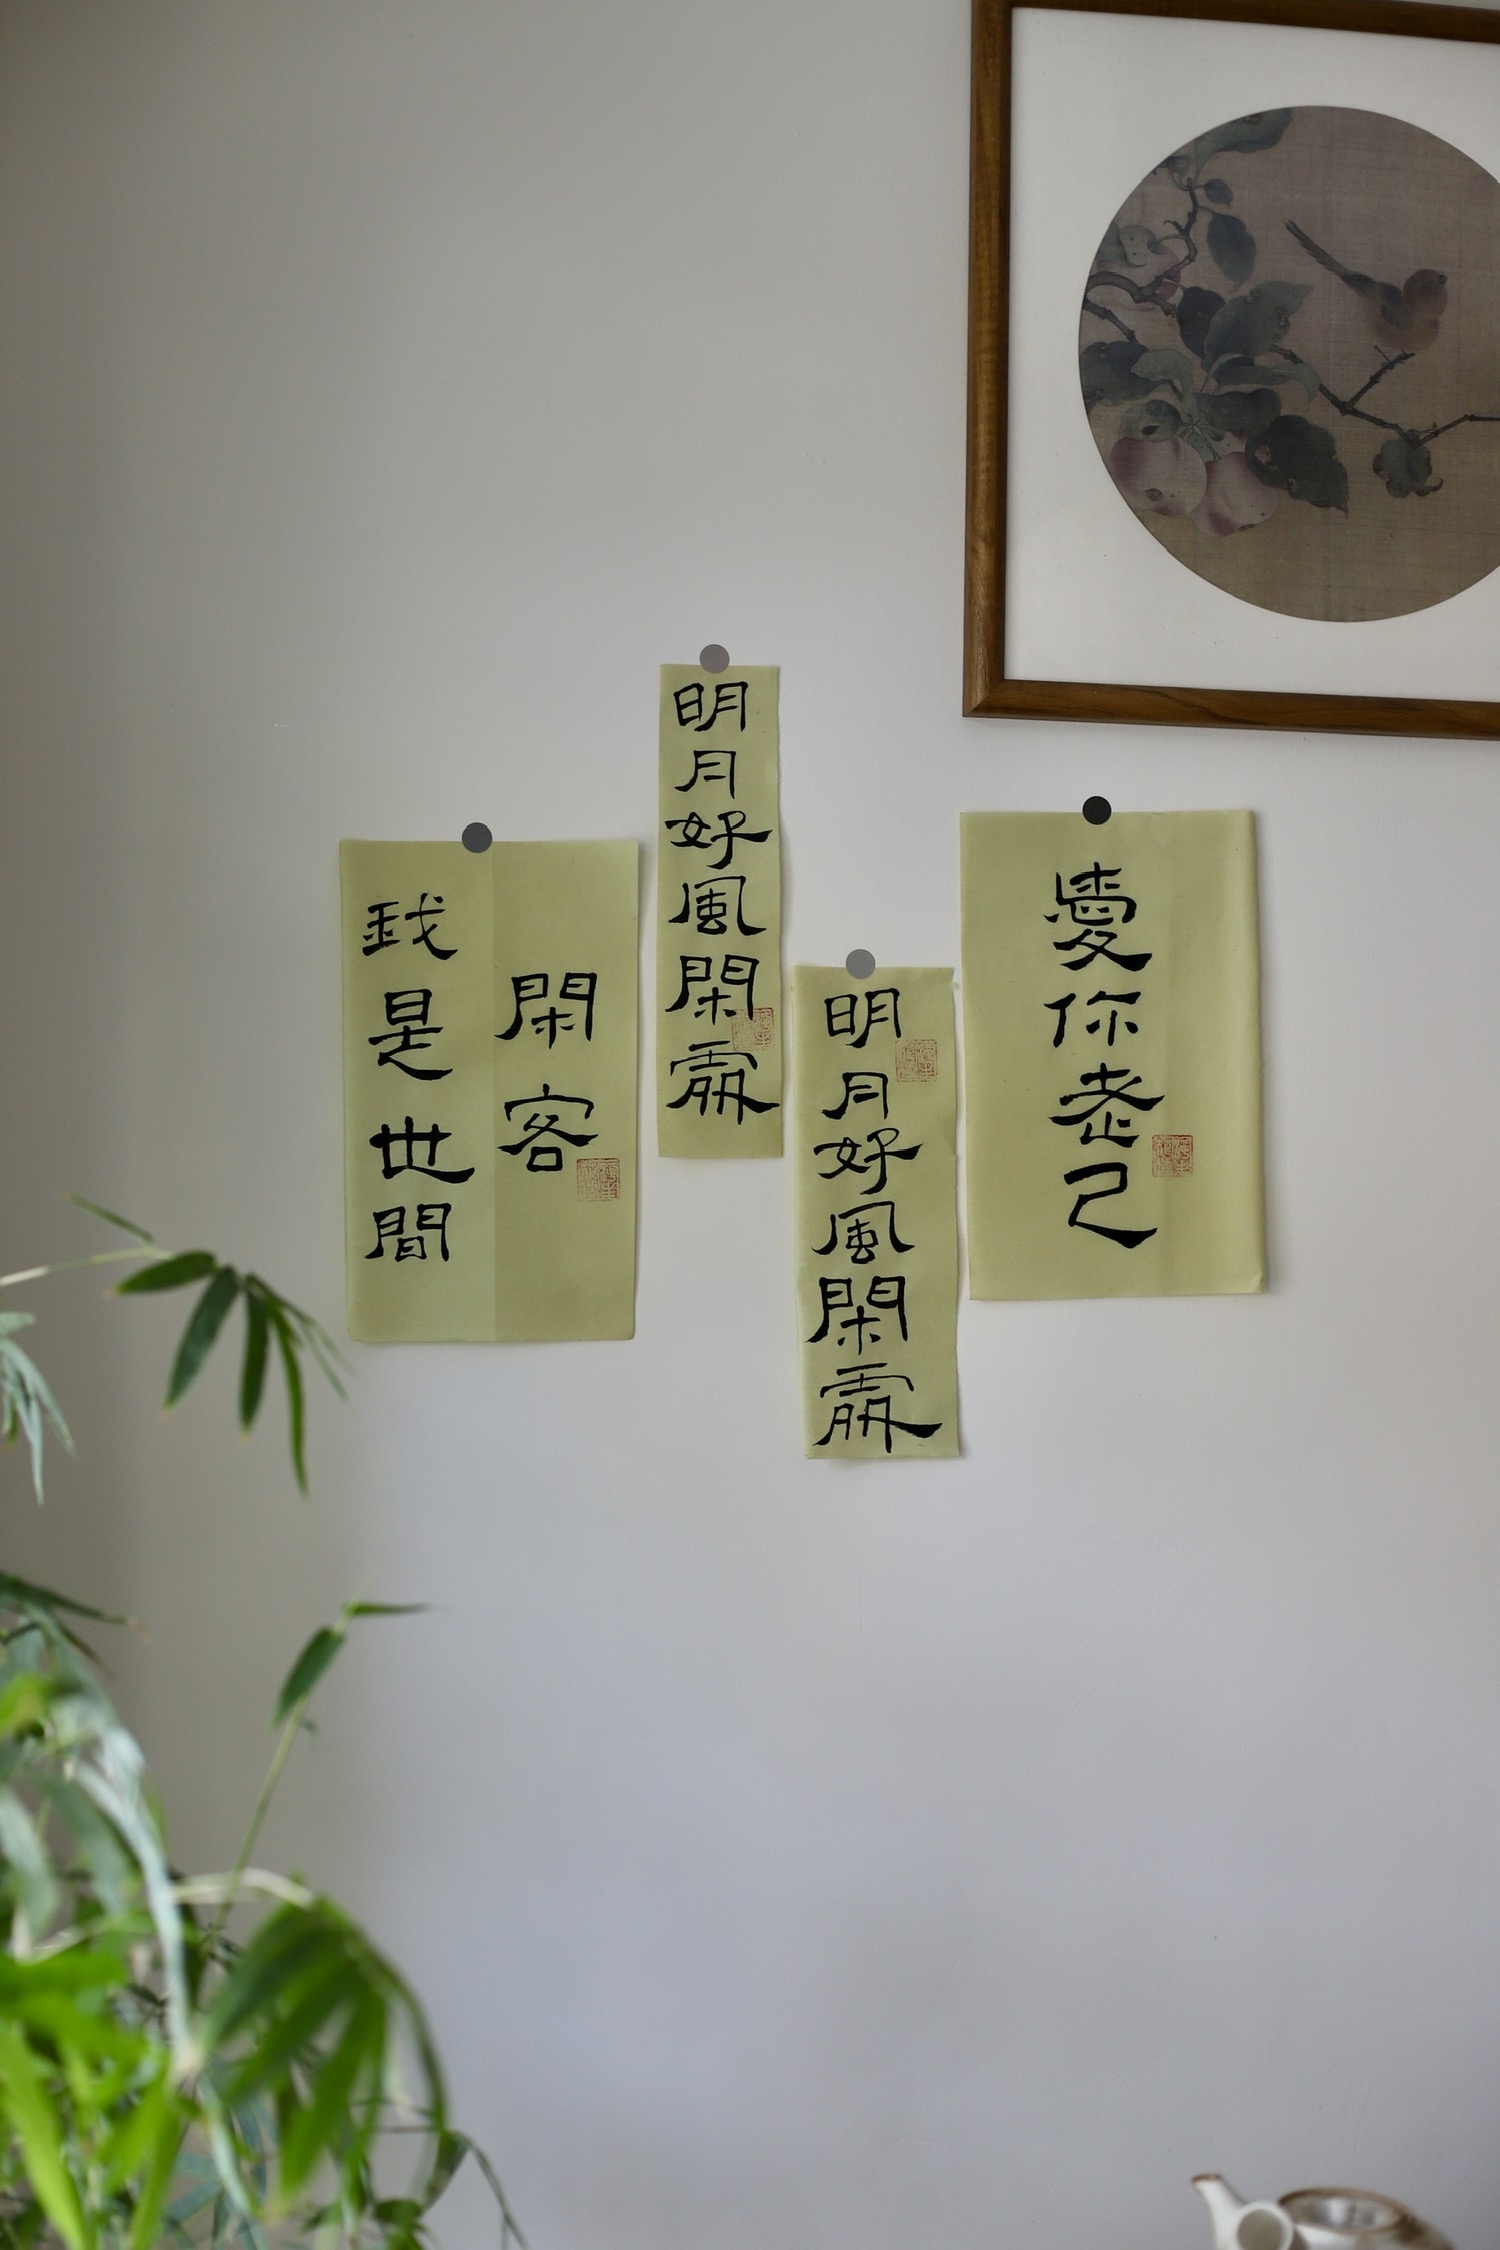 我是世間
閑客
明月好風閑處
明月好風閑處
愛你老己